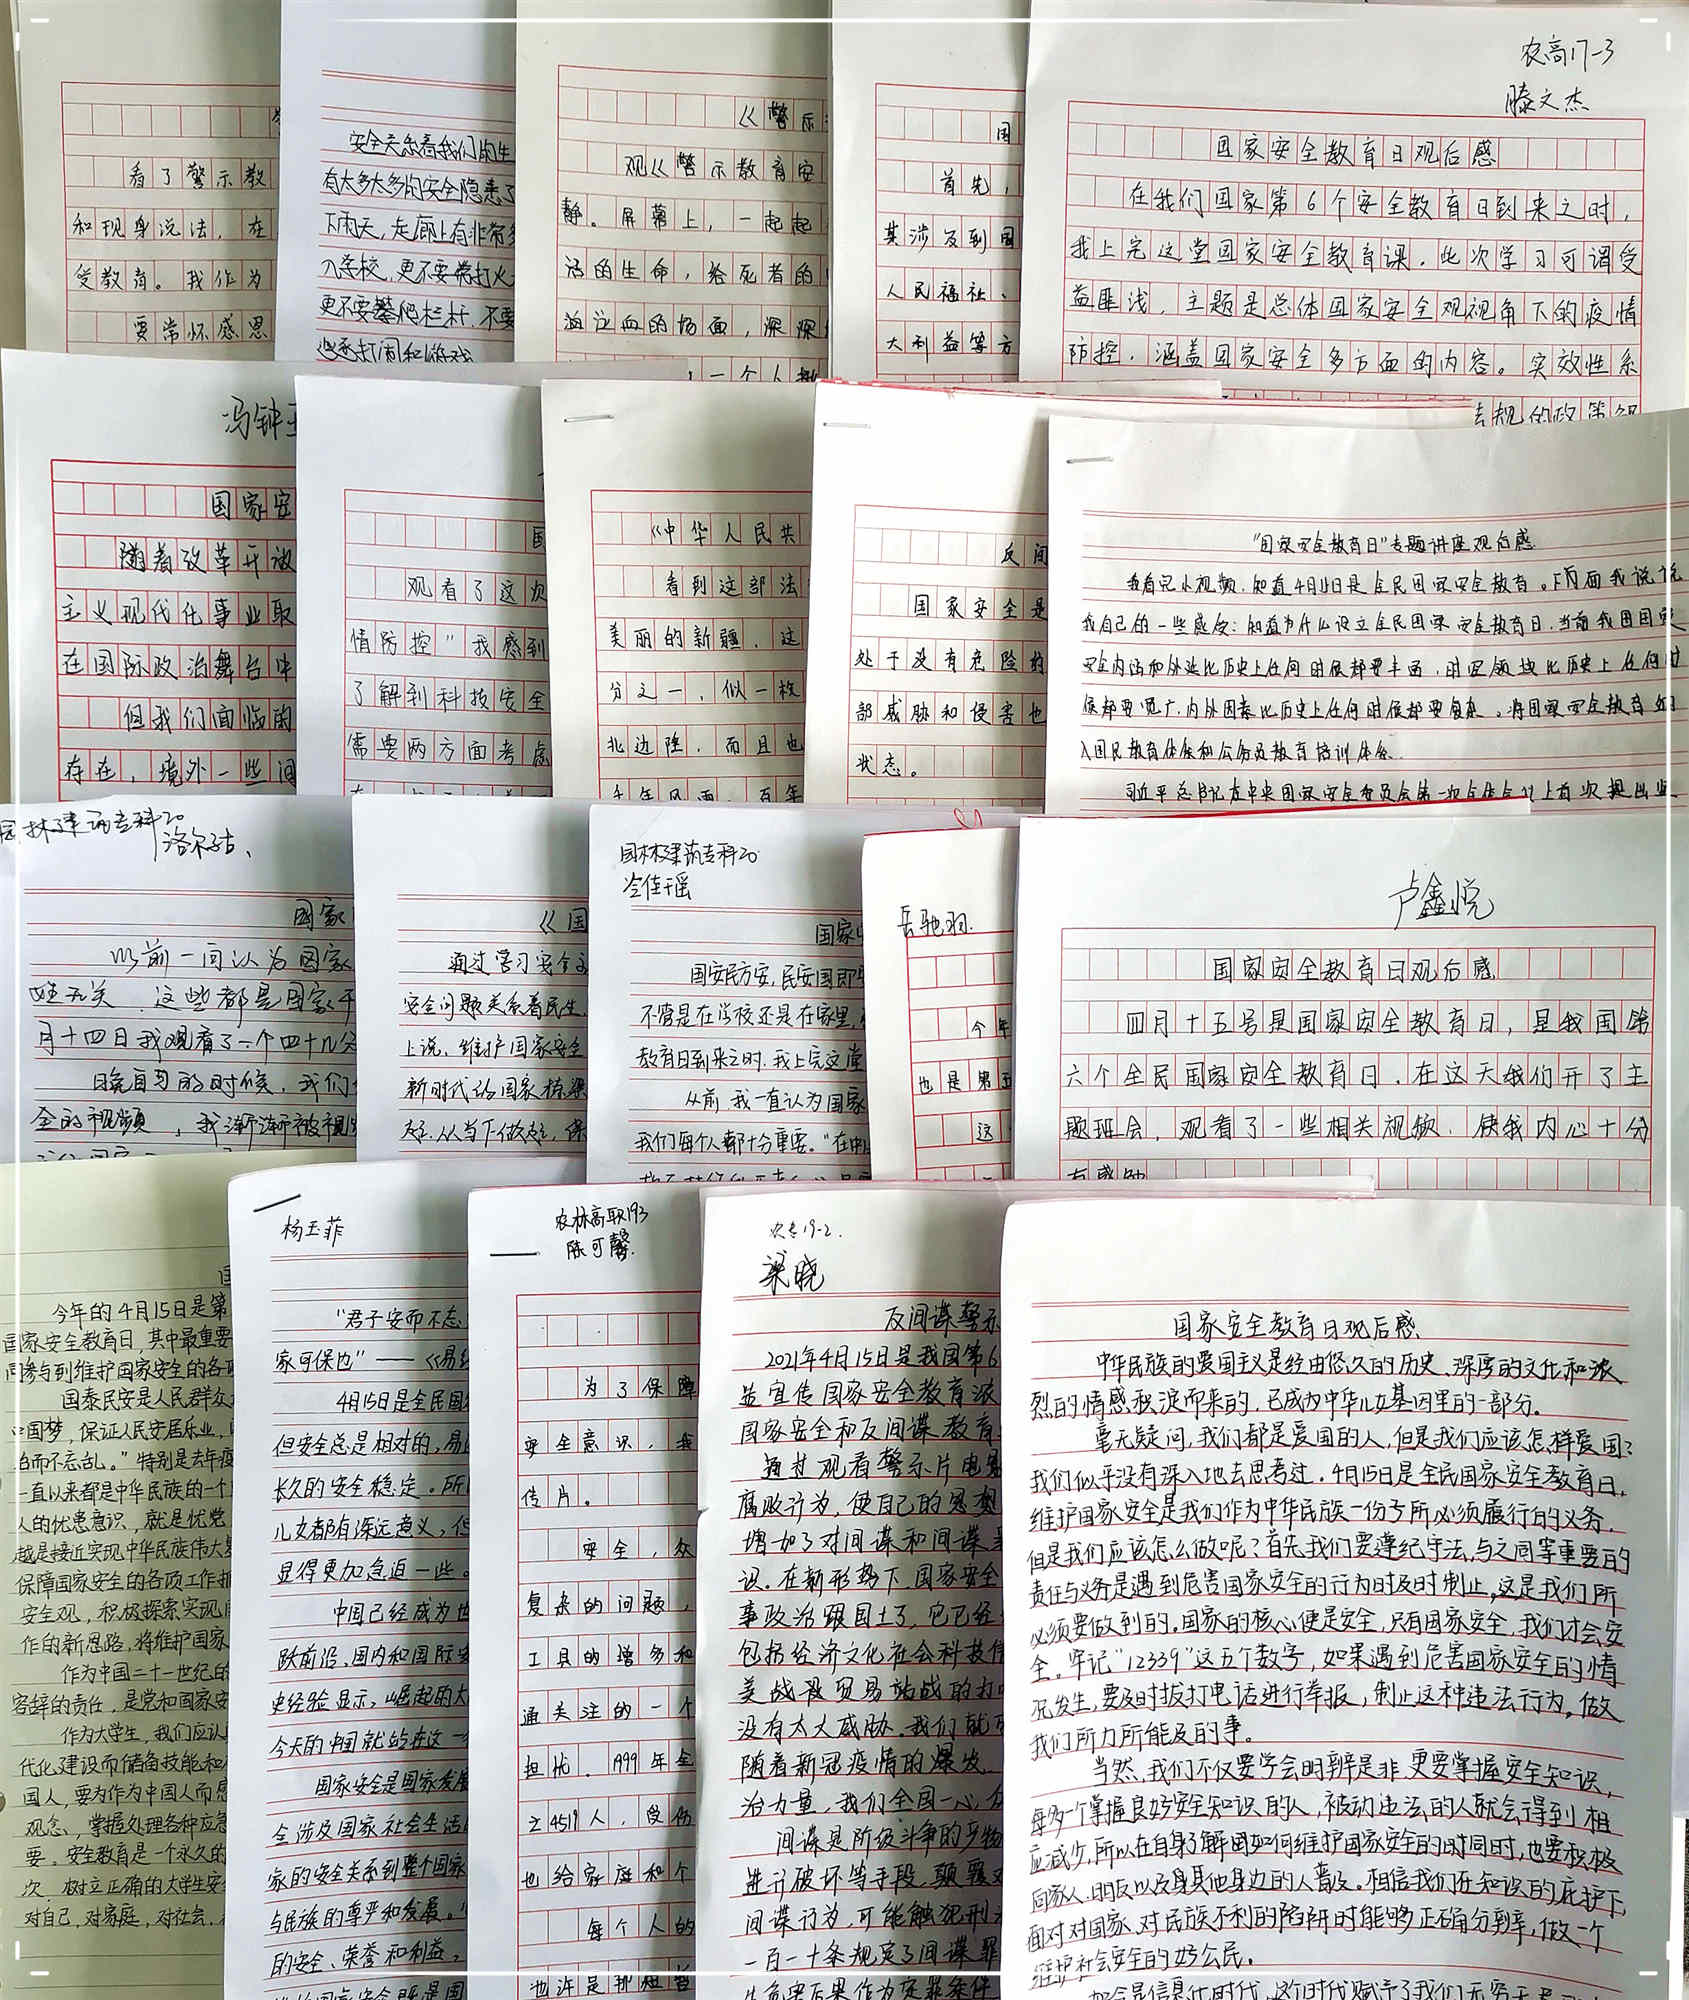 看了警示教
和现身说法，在
受教育。我作为
要常怀感恩
安全关系着我们的生
有太多太多的安全隐患了
下雨天，走廊上有非常多
入学校，更不要带打火
更不要攀爬栏杆，不要
追逐打闹和游戏
《警示
观《警示教育安
静。屏幕上，一起起
活的生命，给死者的
血泣血的场面，深深
一个人
国
首先，
某涉及到国
人民福祉、
大利益等方
农高17-3
滕文杰
国家安全教育日观后感
在我们国家第6个安全教育日到来之时，
我上完这堂国家安全教育课，此次学习可谓受
益匪浅，主题是总体国家安全观视角下的疫情
防控，涵盖国家安全多方面的内容。实效性系
规的政策
冯钟
国家安
随着改革开放
主义现代化事业取
在国际政治舞台中
但我们面临的
存在，境外一些间
国
观看了这次
情防控"我感到
了解到科技安全
需要两方面考虑
《中华人民共
看到这部法
美丽的新疆，这
分之一，似一枚
北边陲，而且也
千年风雨，百年
反间
国家安全是
处于没有危险的
部威胁和侵害也
状态。
"国家安全教育日"专题讲座观后感
我看完小视频，知道4月15日是全民国家安全教育。下面我说说
我自己的一些感受：知道为什么设立全民国家安全教育日，当前我国国家
安全内涵和外延比历史上任何时候都要丰富，时空领域比历史上任何时
候都要宽广，内外因素比历史上任何时候都要复杂。将国家安全教育纳
入国民教育体系和公务员教育培训体系.
习近平总书记在中央国家安全委员会第一次全体会议上首次提出
园林建筑专科20
洛尔古、
国家
以前一向认为国家
姓无关，这些都是国家干
月十四日我观看了一个四十几分
晚自习的时候，我们
全的视频，我渐渐被视频
《国
通过学习安全
安全问题关系着民生，
上说，维护国家安全
新时代的国家栋梁
起，从当下做起，保
园林建筑专科20
冷佳瑶
国家
国安民方安，民安国即
不管是在学校还是在家里，
教育日到来之时，我上完这堂
从前，我一直认为国家
我们每个人都十分重要。"在中
岳驰羽.
今年
也是第五
这
卢鑫悦
国家安全教育日观后感
四月十五号是国家安全教育日，是我国第
六个全民国家安全教育日，在这天我们开了主
题班会，观看了一些相关视频，使我内心十分
有感触
国
今年的4月15日是第
国家安全教育日，其中最重要
同参与到维护国家安全的各项
国泰民安是人民群众
中国梦，保证人民安居乐业，
治而不忘乱。"特别是去年疫
一直以来都是中华民族的一个
人的忧患意识，就是忧党
越是接近实现中华民族伟大复
保障国家安全的各项工作抓
安全观，积极探索实现
作的新思路，将维护国家
作为中国二十一世纪的
容辞的责任，是党和国家安
作为大学生，我们应认
代化建设而储备技能和
国人，要为作为中国人而感
观念、掌握处理各种应急
要。安全教育是一个永久的
次，树立正确的大学生安
对自己，对家庭，对社会，
杨玉菲
"君子安而不忘
家可保也"——《易经
4月15日是全民国
但安全总是相对的，易
长久的安全稳定。所
儿女都有深远意义，但
显得更加急迫一些。
中国已经成为世
跃前沿、国内和国际安
史经验显示，崛起的大
今天的中国就站在这一
国家安全是国家发展
全涉及国家社会生活
家的安全关系到整个国家
与民族的尊严和发展。
的安全、荣誉和利益，
农林高职193
陈可馨.
为了保障
安全意识，我
传片。
安全，众
复杂的问题，
工具的增多和
通关注的一个
担忧。1999年全
亡4519人，受伤
也给家庭和个
每个人的
也许是那短暂
农专19-2.
梁晓
反间谍警示
2021年4月15日是我国第6
益宣传国家安全教育浓
国家安全和反间谍教育
通过观看警示片电影
腐败行为，使自己的思想
增加了对间谍和间谍
识。在新形势下，国家安全
事政治跟国土了，它已经
包括经济文化社会科技信
美战及贸易站战的打响
没有太大威胁。我们就可
随着新冠疫情的爆发、
治力量，我们全国一心，众
间谍是阶级斗争的产物
进行破坏等手段，颠覆对
间谍行为，可能触犯刑法
一百一十条规定了间谍罪
生危害后果作为定罪条件
国家安全教育日观后感
中华民族的爱国主义是经由悠久的历史、深厚的文化和浓
烈的情感积淀而来的，已成为中华儿女基因里的一部分。
毫无疑问，我们都是爱国的人，但是我们应该怎样爱国？
我们似乎没有深入地去思考过。4月15日是全民国家安全教育日，
维护国家安全是我们作为中华民族一份子所必须履行的义务，
但是我们应该怎么做呢？首先我们要遵纪守法，与之同等重要的
责任与义务是遇到危害国家安全的行为时及时制止，这是我们所
必须要做到的。国家的核心便是安全，只有国家安全，我们才会安
全。牢记"12339"这五个数字，如果遇到危害国家安全的情
况发生，要及时拔打电话进行举报，制止这种违法行为。做
我们所力所能及的事。
当然，我们不仅要学会明辨是非，更要掌握安全知识，
每多一个掌握良好安全知识的人，被动违法的人就会得到相
应减少，所以在自身了解国如何维护国家安全的时同时，也要积极
向家人、朋友以及身其他身边的人普及。相信我们在知识的庇护下，
面对对国家、对民族不利的陷阱时能够正确分到辛，做一个
维护社会安全的好公民。
如今是信息化时代，这个时代赋予了我们无穷无